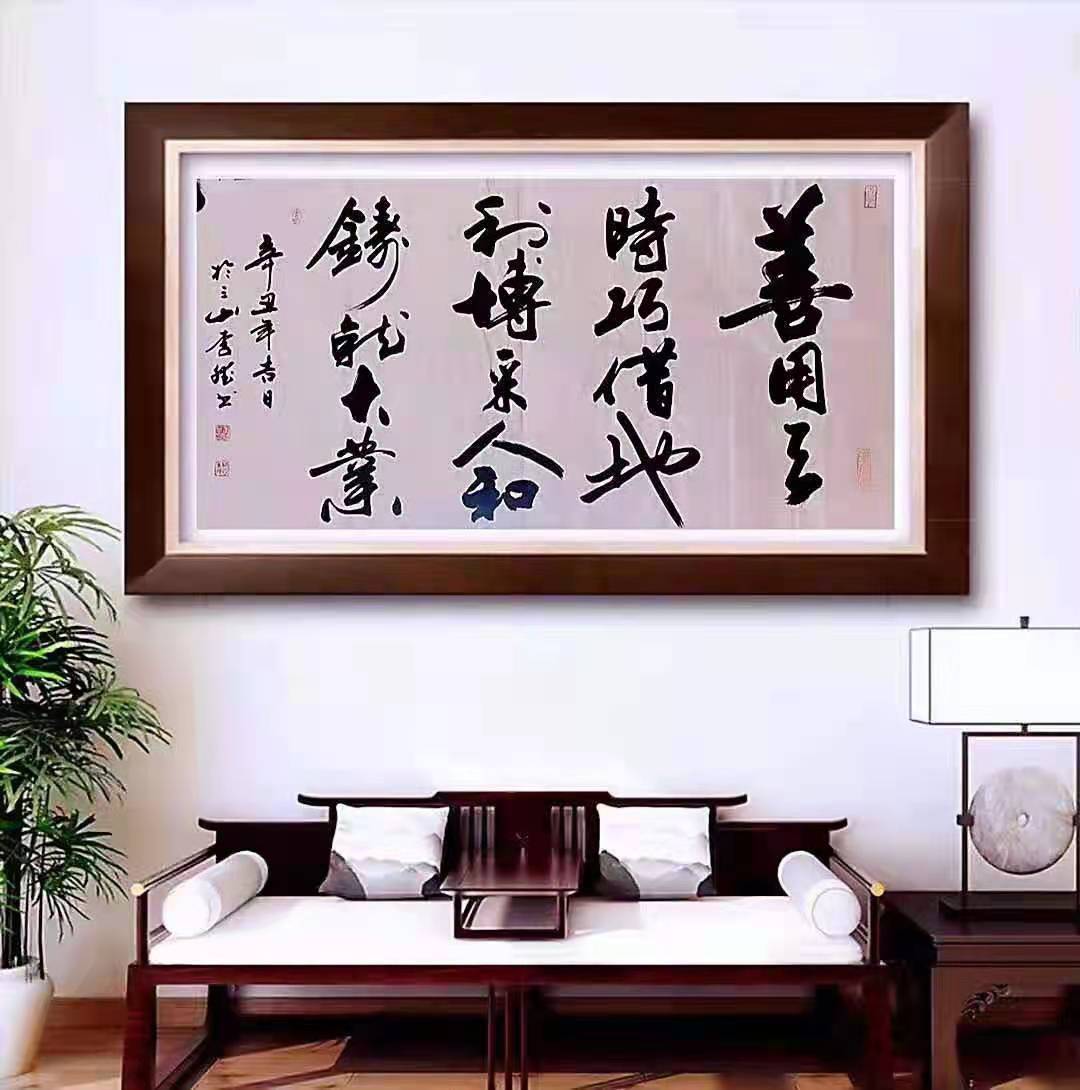 善用天
時巧借地
利博采人和
鑄就大業
辛丑年吉日
於三山李书